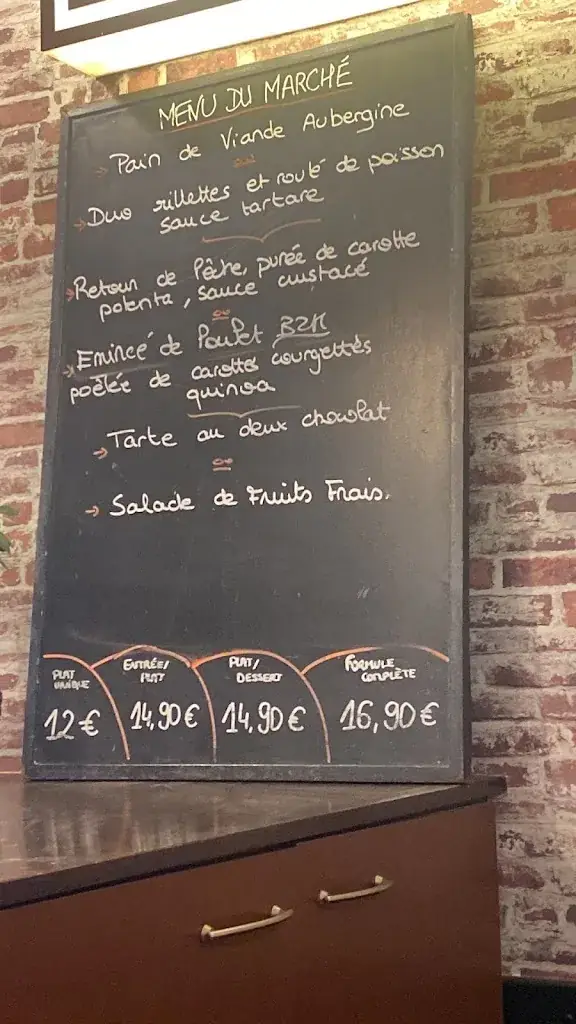 MENU DU MARCHÉ
→ Pain de Viande Aubergine
ou
→ Duo rillettes et roulé de poisson
sauce tartare
→ Retour de Pêche, purée de carotte
polenta, sauce crustacé
ou
→ Emincé de Poulet
poêlée de carottes courgettes
quinoa
→ Tarte au deux chocolat
ou
→ Salade de Fruits Frais.
PLAT
UNIQUE
12 €
ENTRÉE/
PLAT
14,90 €
PLAT/
DESSERT
14,90 €
FORMULE
COMPLÈTE
16,90 €